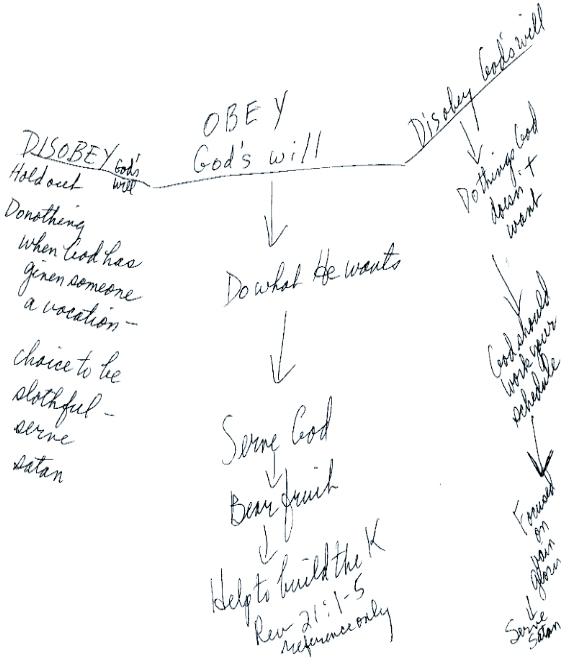 DISOBEY God's
will
Hold out
Do nothing
when God has
given someone
a vocation-
choice to be
slothful-
serve
satan
OBEY
God's will
Do what He wants
Serve God
Bear fruit
Help to build the K
Rev 21:1-5
reference only
Disobey God's will
Do things God
doesn't
want
God should
work your
schedule
Focused
on
vain
glory
Serve
Satan